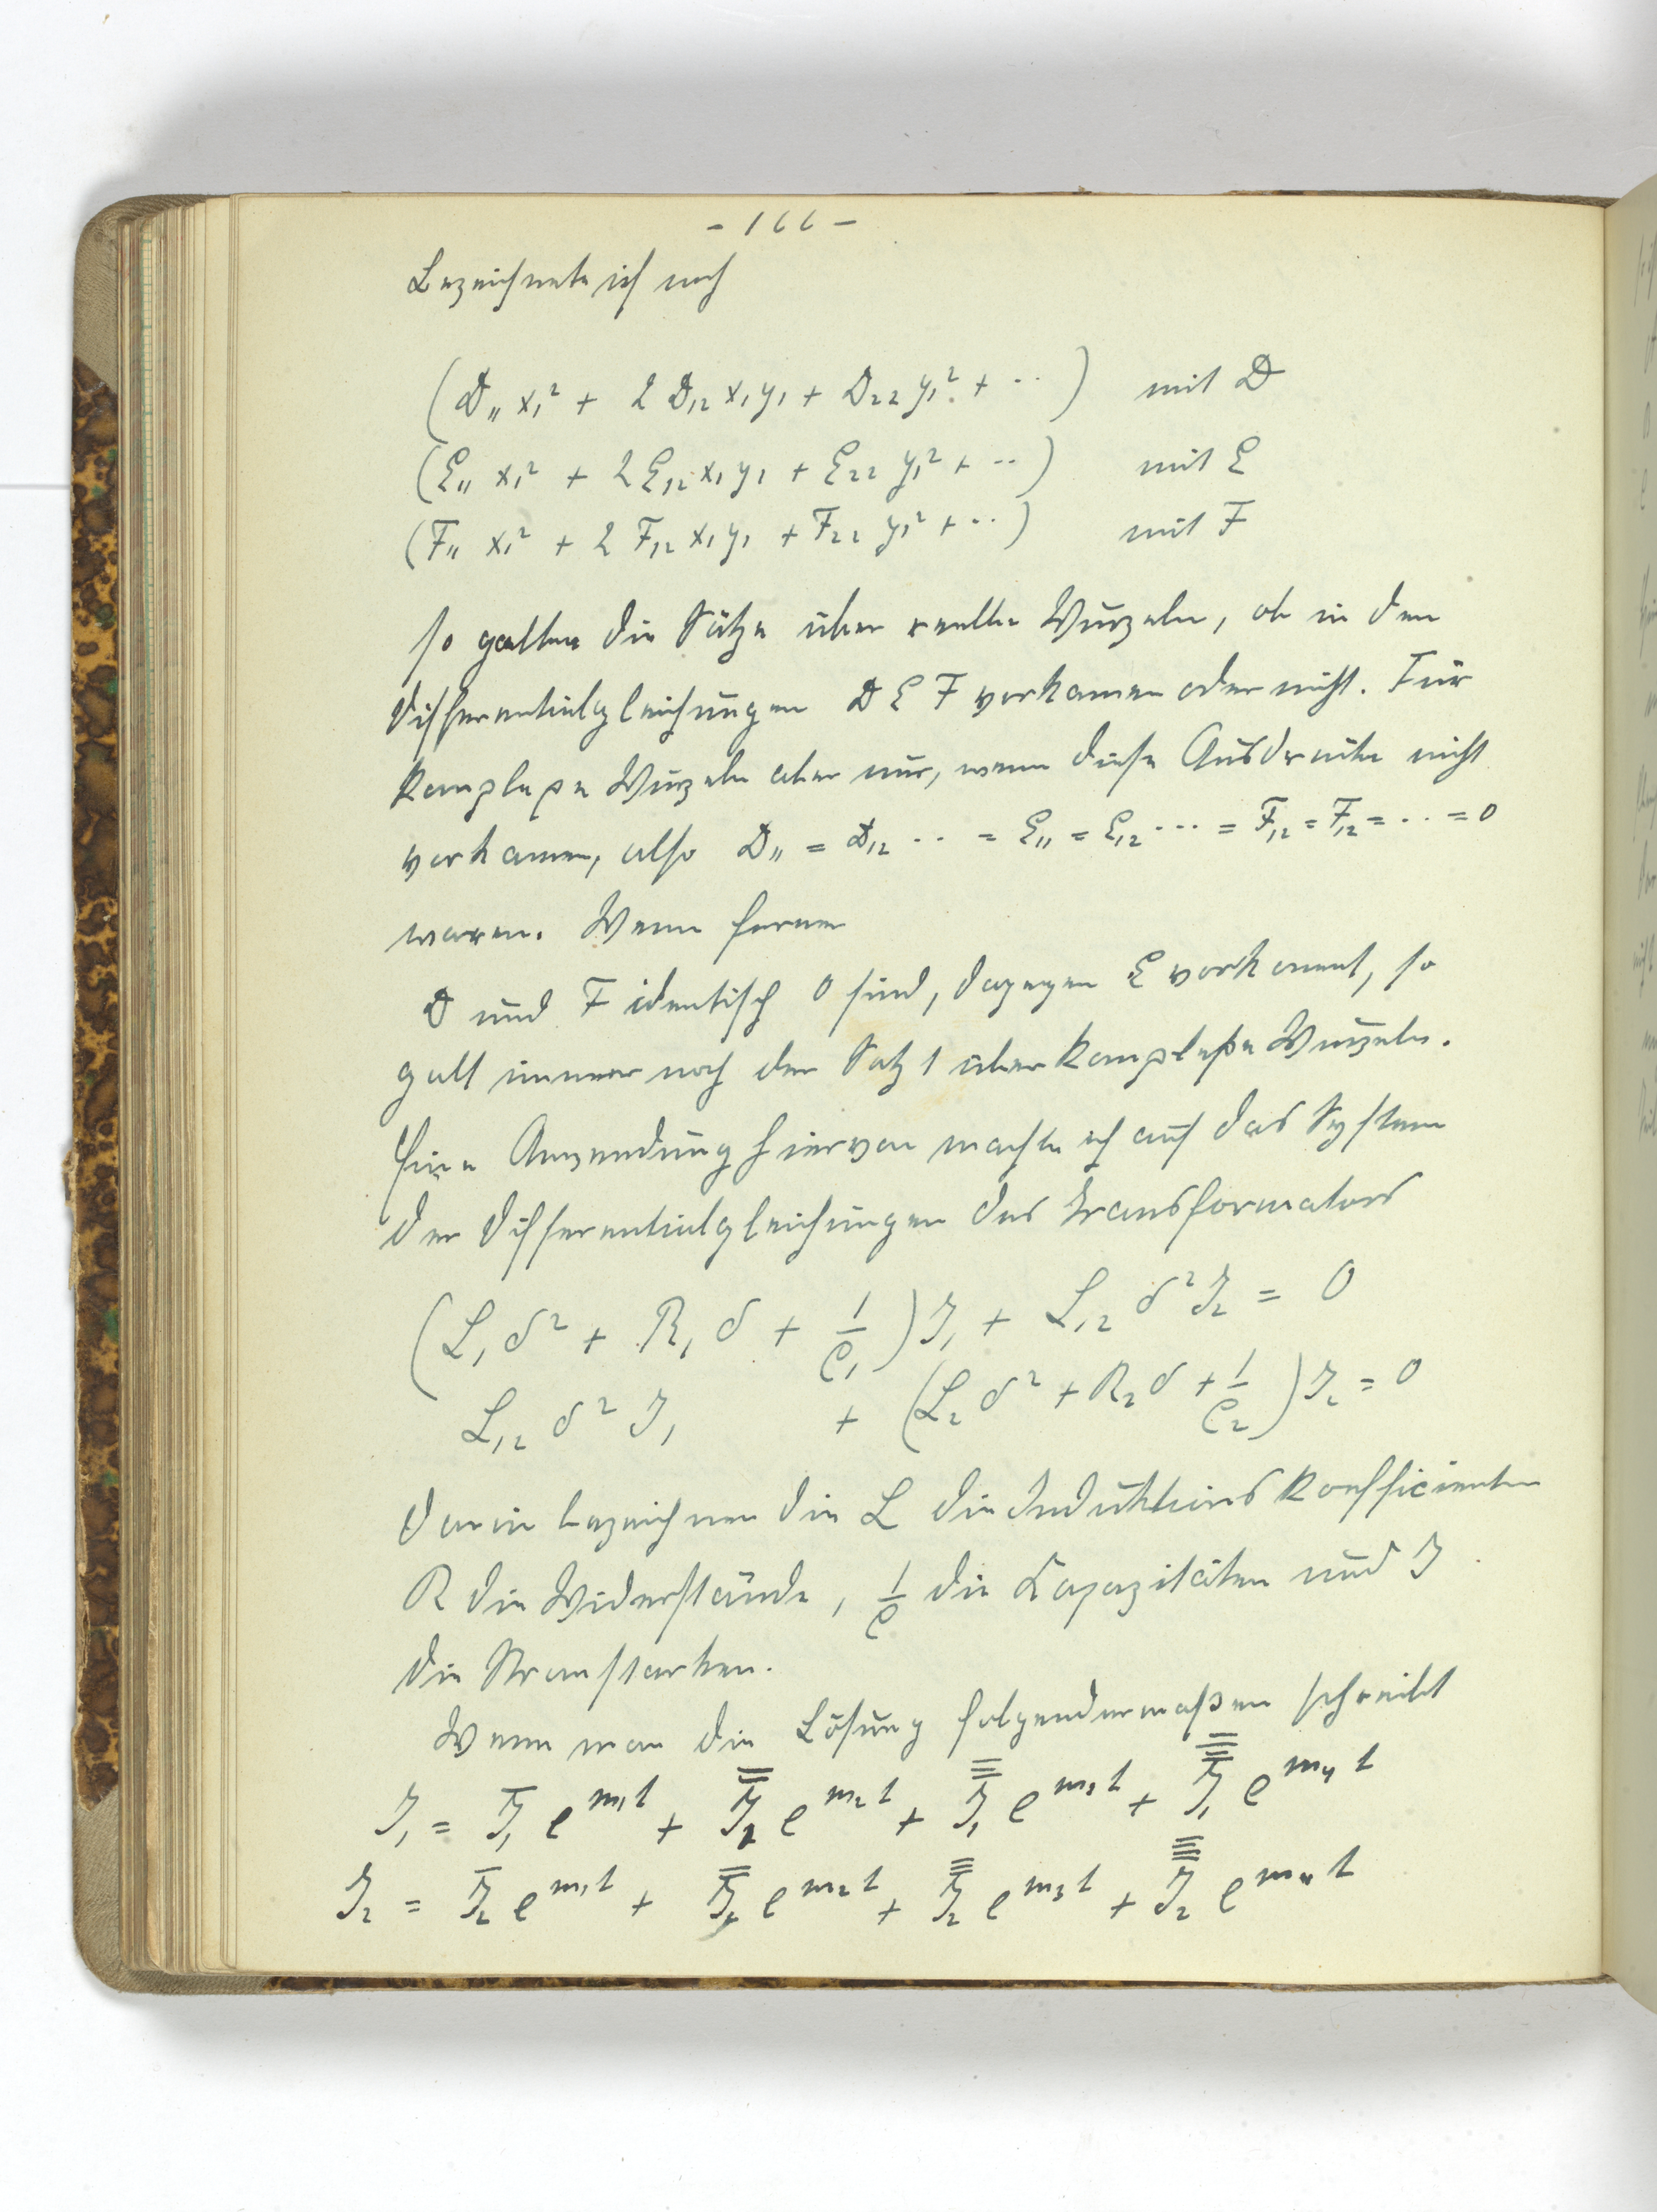 - 166 -
Bezeichnete ich noch
(D₁₁ x₁² + 2 D₁₂ x₁ y₁ + D₂₂ y₁² + ··) mit D
(E₁₁ x₁² + 2 E₁₂ x₁ y₁ + E₂₂ y₁² + ··) mit E
(F₁₁ x₁² + 2 F₁₂ x₁ y₁ + F₂₂ y₁² + ··) mit F
so galten die Sätze über reelle Wurzeln, ob in den
Differentialgleichungen D E F vorkamen oder nicht. Für
komplexe Wurzeln aber nur, wenn diese Ausdrücke nicht
vorkamen, also D₁₁ = D₁₂ ·· = E₁₁ = E₁₂ ··· = F₁₂ = F₁₂ = ·· = 0
waren. Wenn ferner
D und F identisch 0 sind, dagegen E vorkommt, so
galt immer noch der Satz 1 über komplexe Wurzeln.
Eine Anwendung hiervon machte ich auf das System
der Differentialgleichungen des Transformators
(L₁ δ² + R₁ δ + 1/C₁) J₁ + L₁₂ δ² J₂ = 0
L₁₂ δ² J₁ + (L₂ δ² + R₂ δ + 1/C₂) J₂ = 0
Darin bezeichnen die L die Induktionskoefficienten
R die Widerstände, 1/C die Kapazitäten und J
die Stromstärken.
Wenn man die Lösung folgendermaßen schreibt
J₁ = J̅₁ e^{m₁t} + J̿₁ e^{m₂t} + J̿̅₁ e^{m₃t} + J̿̿₁ e^{m₄t}
J₂ = J̅₂ e^{m₁t} + J̿₂ e^{m₂t} + J̿̅₂ e^{m₃t} + J̿̿₂ e^{m₄t}